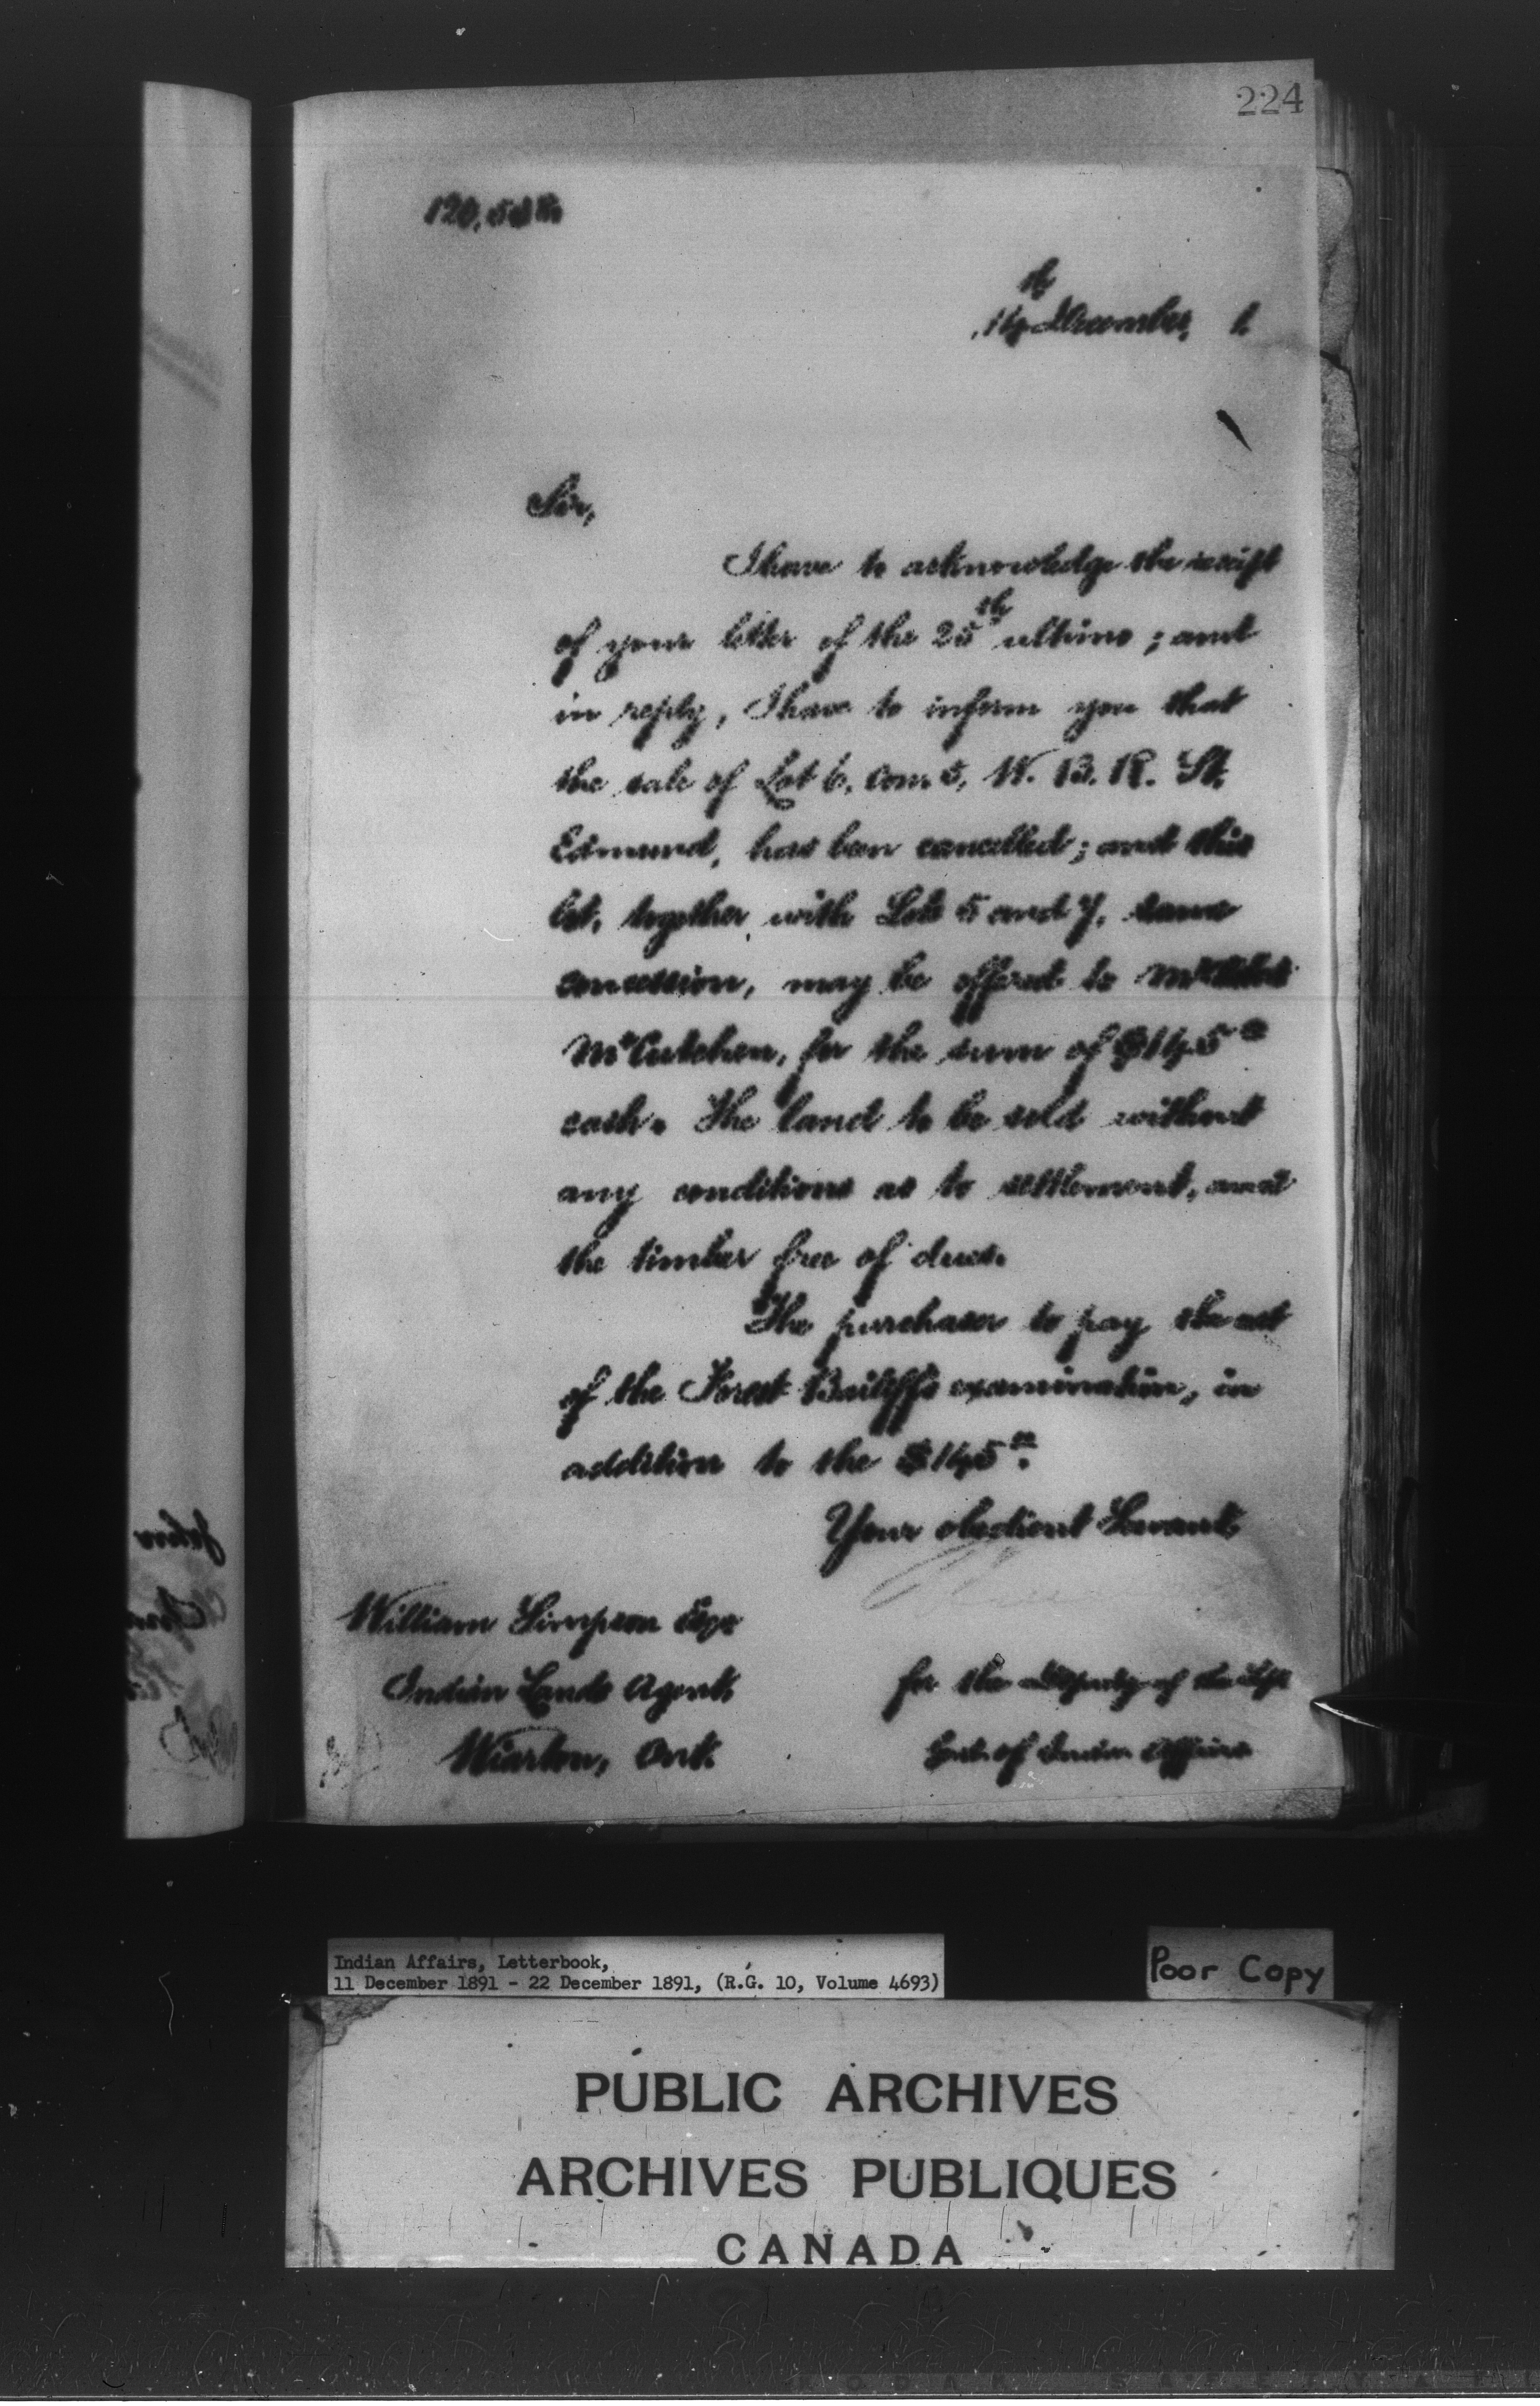 224
14th December, 1.
Sir,
I have to acknowledge the receipt
of your letter of the 25th ultimo; and
in reply, I have to inform you that
the sale of Lot 6, Con. 5, W. B. R. St.
Edmund, has been cancelled; and this
lot, together with Lots 5 and 7, same
concession, may be offered to
McCutcheon, for the sum of $145.00
cash. The land to be sold without
any conditions as to settlement, and
the timber free of dues.
The purchaser to pay the cost
of the Forest Bailiff's examination, in
addition to the $145.00.
Your obedient Servant,
William Simpson Esqr
Indian Lands Agent,
Wiarton, Ont.
for the Deputy of the Supt
Genl. of Indian Affairs
Indian Affairs, Letterbook,
11 December 1891 - 22 December 1891, (R.G. 10, Volume 4693)
Poor Copy
PUBLIC ARCHIVES
ARCHIVES PUBLIQUES
CANADA